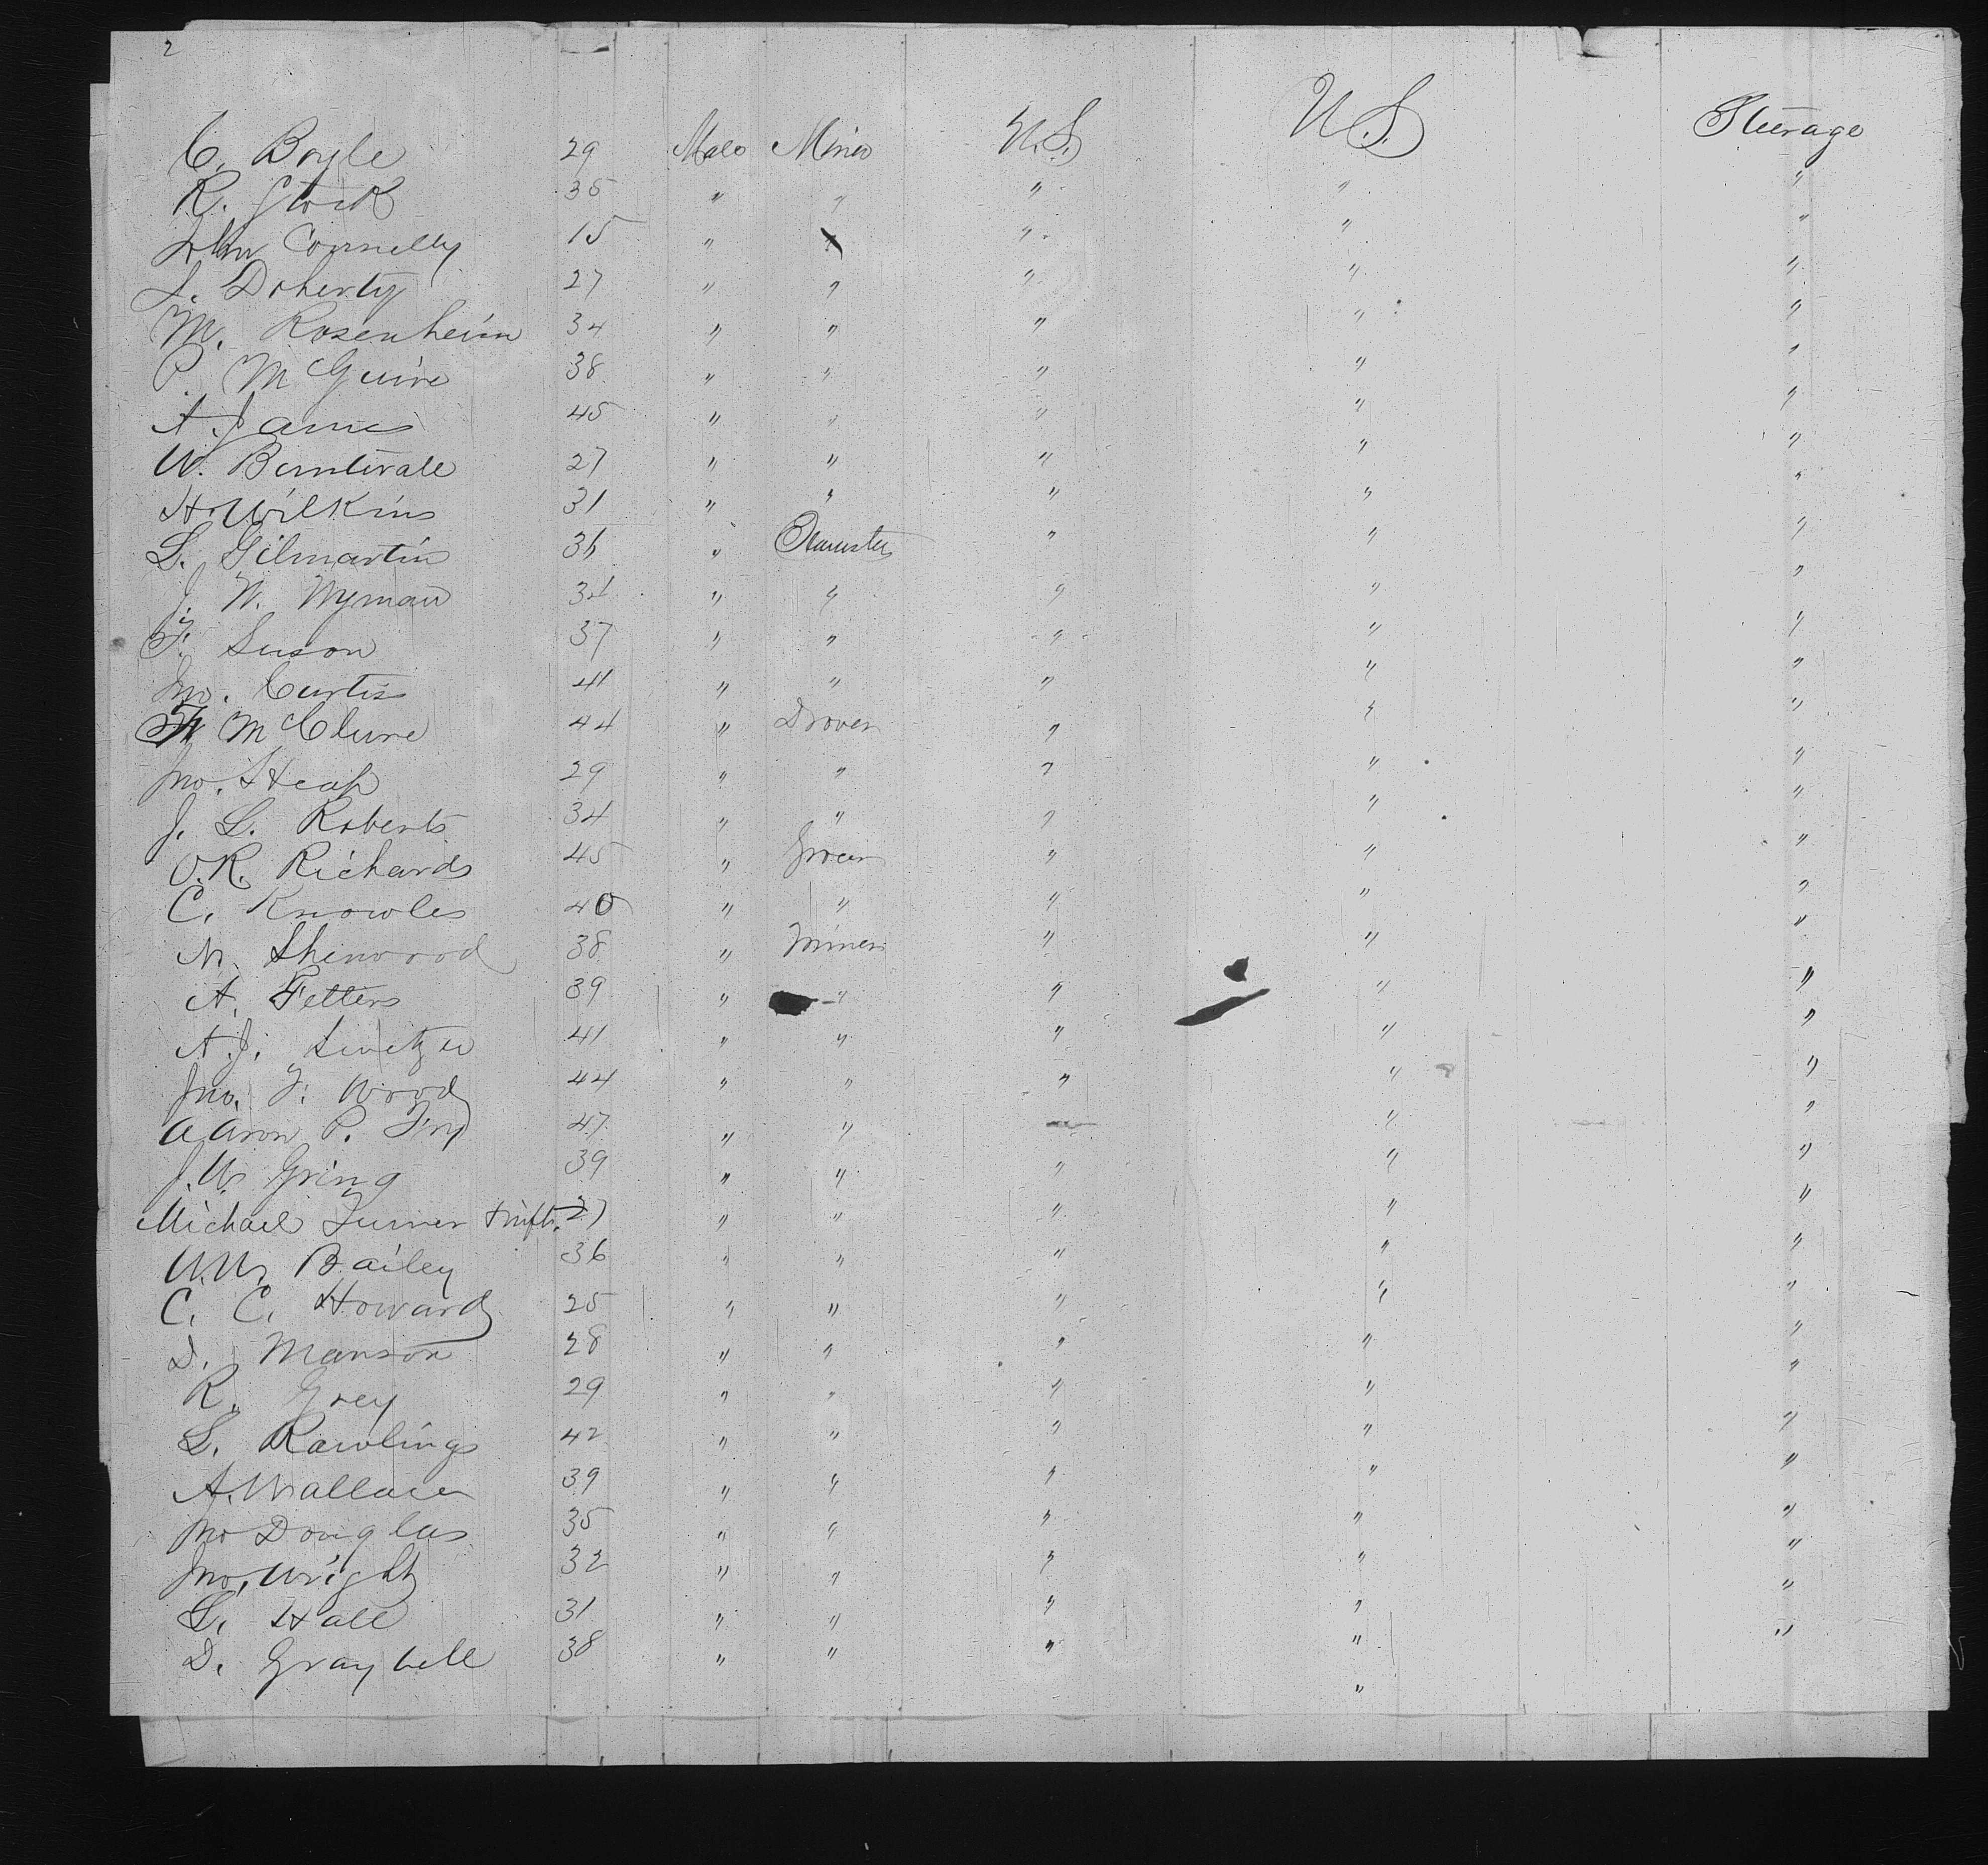 2
C. Boyle 29 Male Miner U.S. U.S. Steerage
R. Stock 35 " " " " "
John Connelly 15 " " " " "
J. Doherty 27 " " " " "
M. Rosenheim 34 " " " " "
P. McGuire 38 " " " " "
A. James 45 " " " " "
W. 27 " " " " "
H. Wilkins 31 " " " " "
L. Gilmartin 36 " " " "
J. W. Wyman 34 " " " " "
F. 37 " " " " "
Jno. Curtis 41 " " " " "
McClure 44 " Drover " " "
Jno. Heap 29 " " " " "
J. L. Roberts 34 " " " " "
O.R. Richards 45 " Grocer " " "
C. Knowles 40 " " " " "
N. Sherwood 38 " Miner " " "
A. Fetters 39 " " " " "
A.J. 41 " " " " "
Jno. F. Wood 44 " " " " "
Aaron P. Fry 47 " " — " "
J.W. Gring 39 " " " " "
Michael Turner 27 " " " " "
W.W. Bailey 36 " " " " "
C. C. Howard 25 " " " " "
D. Manson 28 " " " " "
R. Grey 29 " " " " "
L. Rawlings 42 " " " " "
A. Wallace 39 " " " " "
Jno Douglas 35 " " " " "
Jno. Wright 32 " " " " "
L. Hall 31 " " " " "
D. Graybell 38 " " " " "
"